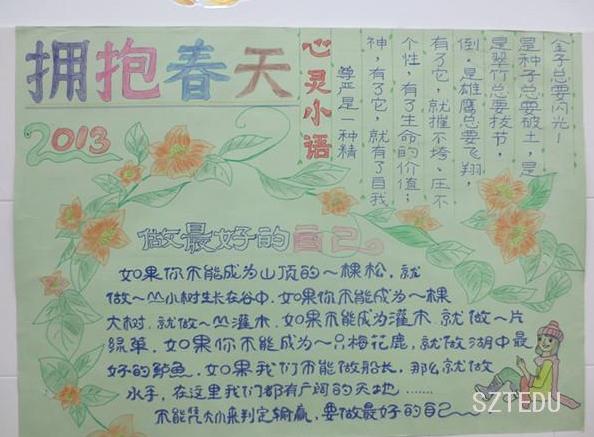 拥抱春天
2013
心灵小语
尊严是一种精
神，有了它，就有了自我
个性，有了生命的价值；
有了它，就摧不垮、压不
倒。是雄鹰总要飞翔，
是翠竹总要拔节，
是种子总要破土，是
金子总要闪光！
做最好的自己
如果你不能成为山顶的一棵松，就
做一丛小树生长在谷中，如果你不能成为一棵
大树，就做一丛灌木，如果不能成为灌木，就做一片
绿草，如果你不能成为一只梅花鹿，就做湖中最
好的鲈鱼，如果我们不能做船长，那么就做
水手，在这里我们都有广阔的天地……
不能凭大小来判定输赢，要做最好的自己
SZTEDU